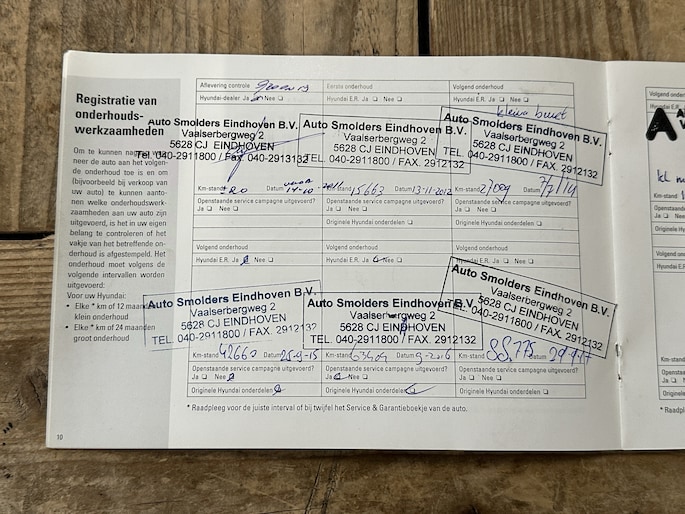 Registratie van
onderhouds-
werkzaamheden
Om te kunnen
neer de auto aan het volgen-
de onderhoud toe is en om
(bijvoorbeeld bij verkoop van
uw auto) te kunnen aanto-
nen welke onderhoudswerk-
zaamheden aan uw auto zijn
uitgevoerd, is het in uw eigen
belang te controleren of het
vakje van het betreffende on-
derhoud is afgestempeld. Het
onderhoud moet volgens de
volgende intervallen worden
uitgevoerd:
Voor uw Hyundai:
• Elke * km of 12 maanden
klein onderhoud
• Elke * km of 24 maanden
groot onderhoud
10
Aflevering controle
Hyundai-dealer Ja Nee
Auto Smolders Eindhoven B.V.
Vaalserbergweg 2
5628 CJ EINDHOVEN
Tel. 040-2911800 / Fax 040-2913132
Km-stand Datum
Openstaande service campagne uitgevoerd?
Ja Nee
Eerste onderhoud
Hyundai E.R. Ja Nee
Auto Smolders Eindhoven B.V.
Vaalserbergweg 2
5628 CJ EINDHOVEN
TEL. 040-2911800 / FAX. 2912132
Km-stand 15663 Datum 13-11-2012
Openstaande service campagne uitgevoerd?
Ja Nee
Originele Hyundai onderdelen
Volgend onderhoud
Hyundai E.R. Ja Nee
kleine beurt
Auto Smolders Eindhoven B.V.
Vaalserbergweg 2
5628 CJ EINDHOVEN
TEL. 040-2911800 / FAX. 2912132
Km-stand 27009 Datum 7/1/14
Openstaande service campagne uitgevoerd?
Ja Nee
Originele Hyundai
Volgend onderhoud
Hyundai E.R. Ja Nee
Auto Smolders Eindhoven B.V.
Vaalserbergweg 2
5628 CJ EINDHOVEN
TEL. 040-2911800 / FAX. 2912132
Km-stand 42660 Datum 25-9-15
Openstaande service campagne uitgevoerd?
Ja Nee
Originele Hyundai onderdelen
Volgend onderhoud
Hyundai E.R. Ja Nee
Auto Smolders Eindhoven B.V.
Vaalserbergweg 2
5628 CJ EINDHOVEN
TEL. 040-2911800 / FAX. 2912132
Km-stand Datum
Openstaande service campagne uitgevoerd?
Ja Nee
Originele Hyundai onderdelen
Volgend onderhoud
Hyundai E.R. Ja Nee
Auto Smolders Eindhoven B.V.
Vaalserbergweg 2
5628 CJ EINDHOVEN
TEL. 040-2911800 / FAX. 2912132
Km-stand 88.775 Datum
Openstaande service campagne uitgevoerd?
Ja Nee
Originele Hyundai onderdelen
* Raadpleeg voor de juiste interval of bij twijfel het Service & Garantieboekje van de auto.
Volgend onderhoud
Hyundai E.R.